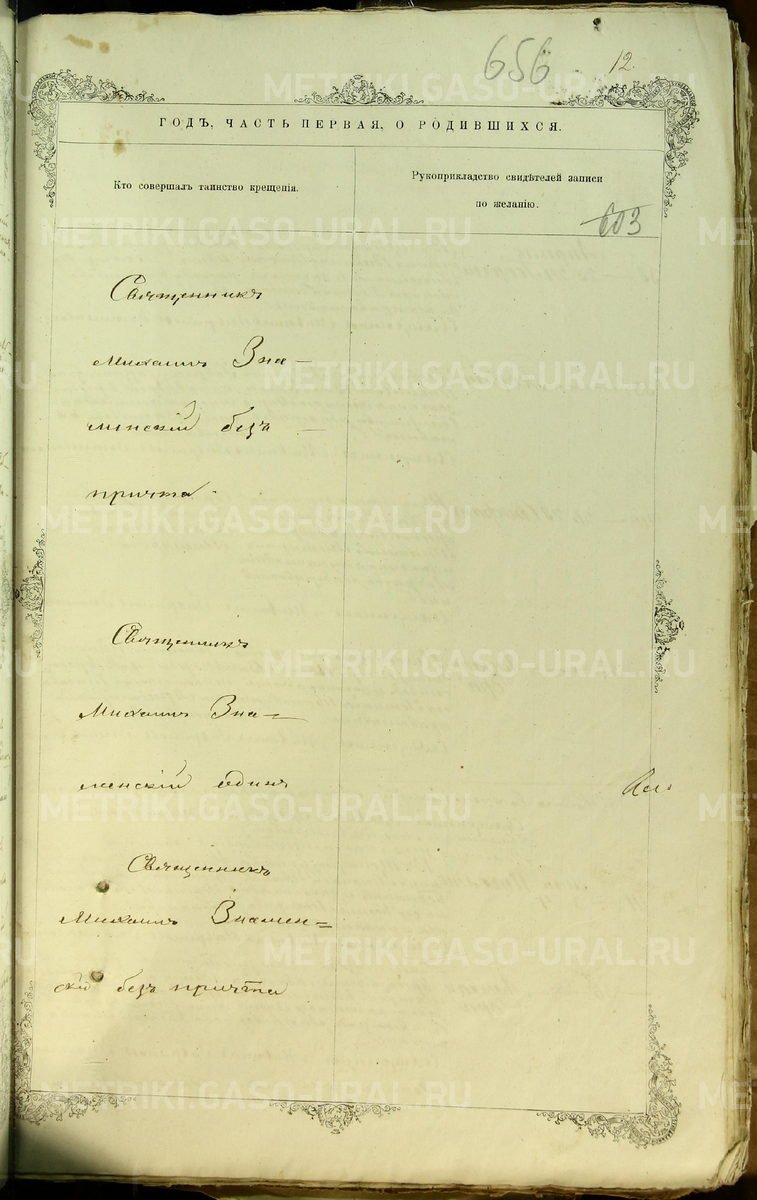 656
12.
ГОДЪ, ЧАСТЬ ПЕРВАЯ, О РОДИВШИХСЯ.
Кто совершалъ таинство крещенія.
Рукоприкладство свидѣтелей записи
по желанію.
603
Священникъ
Михаилъ Зна-
менскій безъ
причта.
Священникъ
Михаилъ Зна=
менскій одинъ
Священникъ
Михаилъ Знамен=
скій безъ причта
METRIKI.GASO-URAL.RU